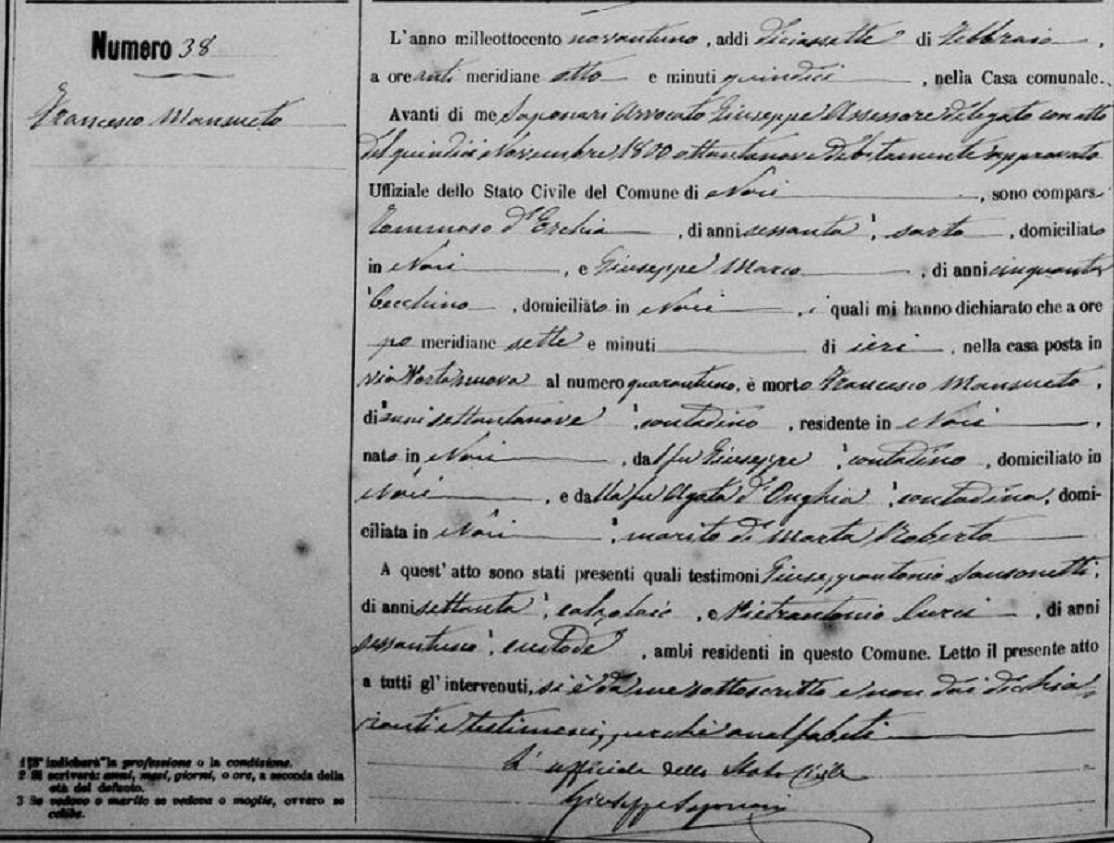 Numero 38
Francesco Mansueto
1 Si indicherà la professione o la condizione.
2 Si scriverà: anni, mesi, giorni, o ore, a seconda della
età del defunto.
3 Se vedovo o marito se vedova o moglie, ovvero se
celibe.
L'anno milleottocento novantuno, addi diciassette di Febbraio,
a ore anti meridiane otto e minuti quindici, nella Casa comunale.
Avanti di me Saponari Avvocato Giuseppe Assessore delegato con atto
del quindici Novembre 1800 ottantanove debitamente approvato
Uffiziale dello Stato Civile del Comune di Noci, sono compars
Tommaso d'Erchia, di anni sessanta, sarto, domiciliato
in Noci, e Giuseppe Marco, di anni cinquanta
becchino, domiciliato in Noci, i quali mi hanno dichiarato che a ore
po meridiane sette e minuti di ieri, nella casa posta in
via Porta nuova al numero quarantuno, è morto Francesco Mansueto,
di anni settantanove, contadino, residente in Noci,
nato in Noci, dal fu Giuseppe, contadino, domiciliato in
Noci, e dalla fu Agata d'Onghia, contadina, domi-
ciliata in Noci, marito di Marta Roberto
A quest'atto sono stati presenti quali testimoni Giuseppantonio Sansonetti,
di anni settanta, calzolaio, e Pietrantonio Curci, di anni
sessantuno, custode, ambi residenti in questo Comune. Letto il presente atto
a tutti gl'intervenuti, si è da me sottoscritto e non dai dichia-
ranti e testimoni, perché analfabeti
L'ufficiale dello Stato Civile
Giuseppe Saponari